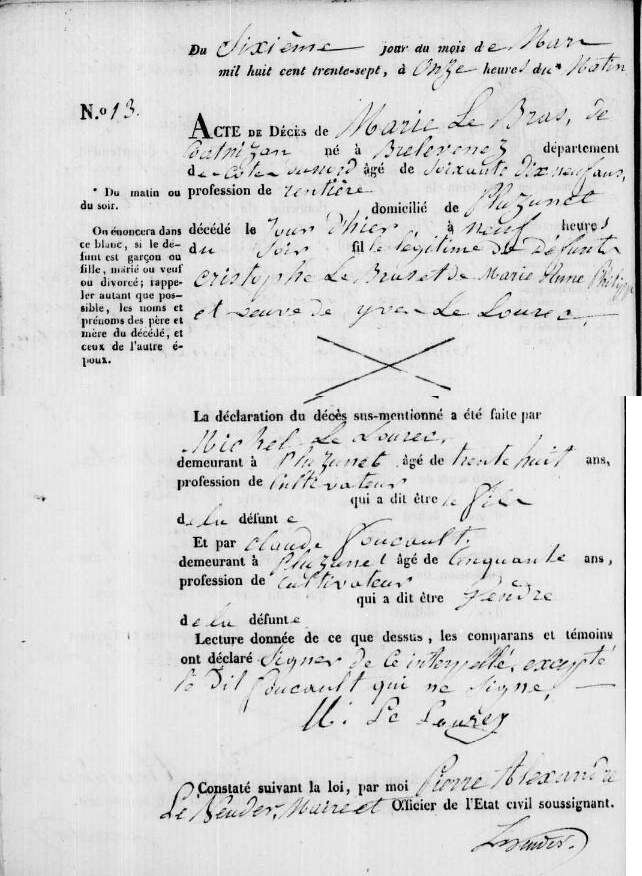 Du Sixième jour du mois de Mars
mil huit cent trente-sept, à Onze heures du * Matin
N.o 13.
ACTE DE DÉCÈS DE Marie Le Bras, de
né à Brelevenez département
de Côtes du nord âgé de soixante dix neuf ans,
profession de rentière
domicilié de Pluzunet
décédé le Jour d'hier, à neuf heures
du Soir fille légitime de Défunts
Cristophe Le Bras et de Marie Anne Philippe
et veuve de yves Le Lourec,
* Du matin ou
du soir.
On énoncera dans
ce blanc, si le dé-
funt est garçon ou
fille, marié ou veuf
ou divorcé; rappe-
ler autant que pos-
sible, les noms et
prénoms des père et
mère du décédé, et
ceux de l'autre é-
poux.
La déclaration du décès sus-mentionné a été faite par
Michel Le Lourec,
demeurant à Pluzunet âgé de trente huit ans,
profession de cultivateur
qui a dit être le fils
de la défunte
Et par claude Foucault,
demeurant à Pluzunet âgé de Cinquante ans,
profession de cultivateur
qui a dit être gendre
de la défunte
Lecture donnée de ce que dessus, les comparans et témoins
ont déclaré Signer de ce interpellé, excepté
le Dit Foucault qui ne Signe,
Le Lourec
Constaté suivant la loi, par moi Pierre Alexandre
Le Vender, Maire et Officier de l'Etat civil soussignant.